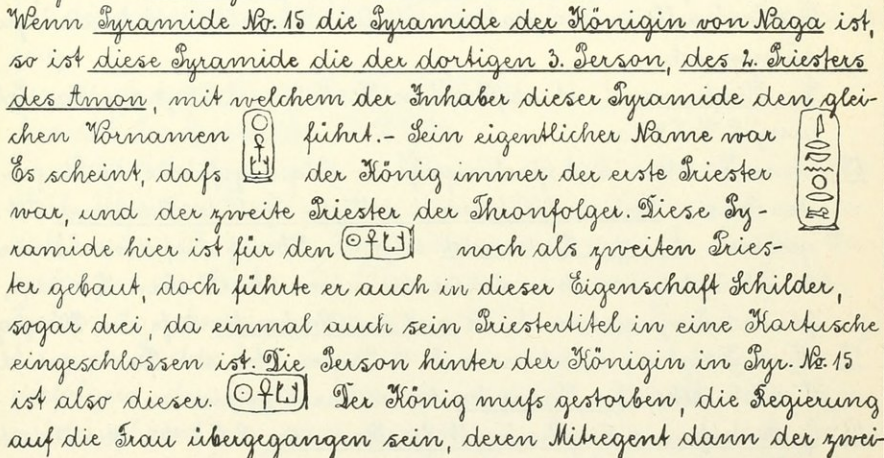 Wenn Pyramide No. 15 die Pyramide der Königin von Naga ist,
so ist diese Pyramide die der dortigen 3. Person, des 2. Priesters
des Amon, mit welchem der Inhaber dieser Pyramide den glei-
chen Vornamen führt.- Sein eigentlicher Name war
Es scheint, dafs der König immer der erste Priester
war, und der zweite Priester der Thronfolger. Diese Py-
ramide hier ist für den noch als zweiten Pries-
ter gebaut, doch führte er auch in dieser Eigenschaft Schilder,
sogar drei, da einmal auch sein Priestertitel in eine Kartusche
eingeschlossen ist. Die Person hinter der Königin in Pyr. No. 15
ist also dieser. Der König mufs gestorben, die Regierung
auf die Frau übergegangen sein, deren Mitregent dann der zwei-